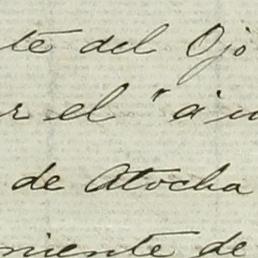 te del Ojo
r el "á
de Atocha
niente de